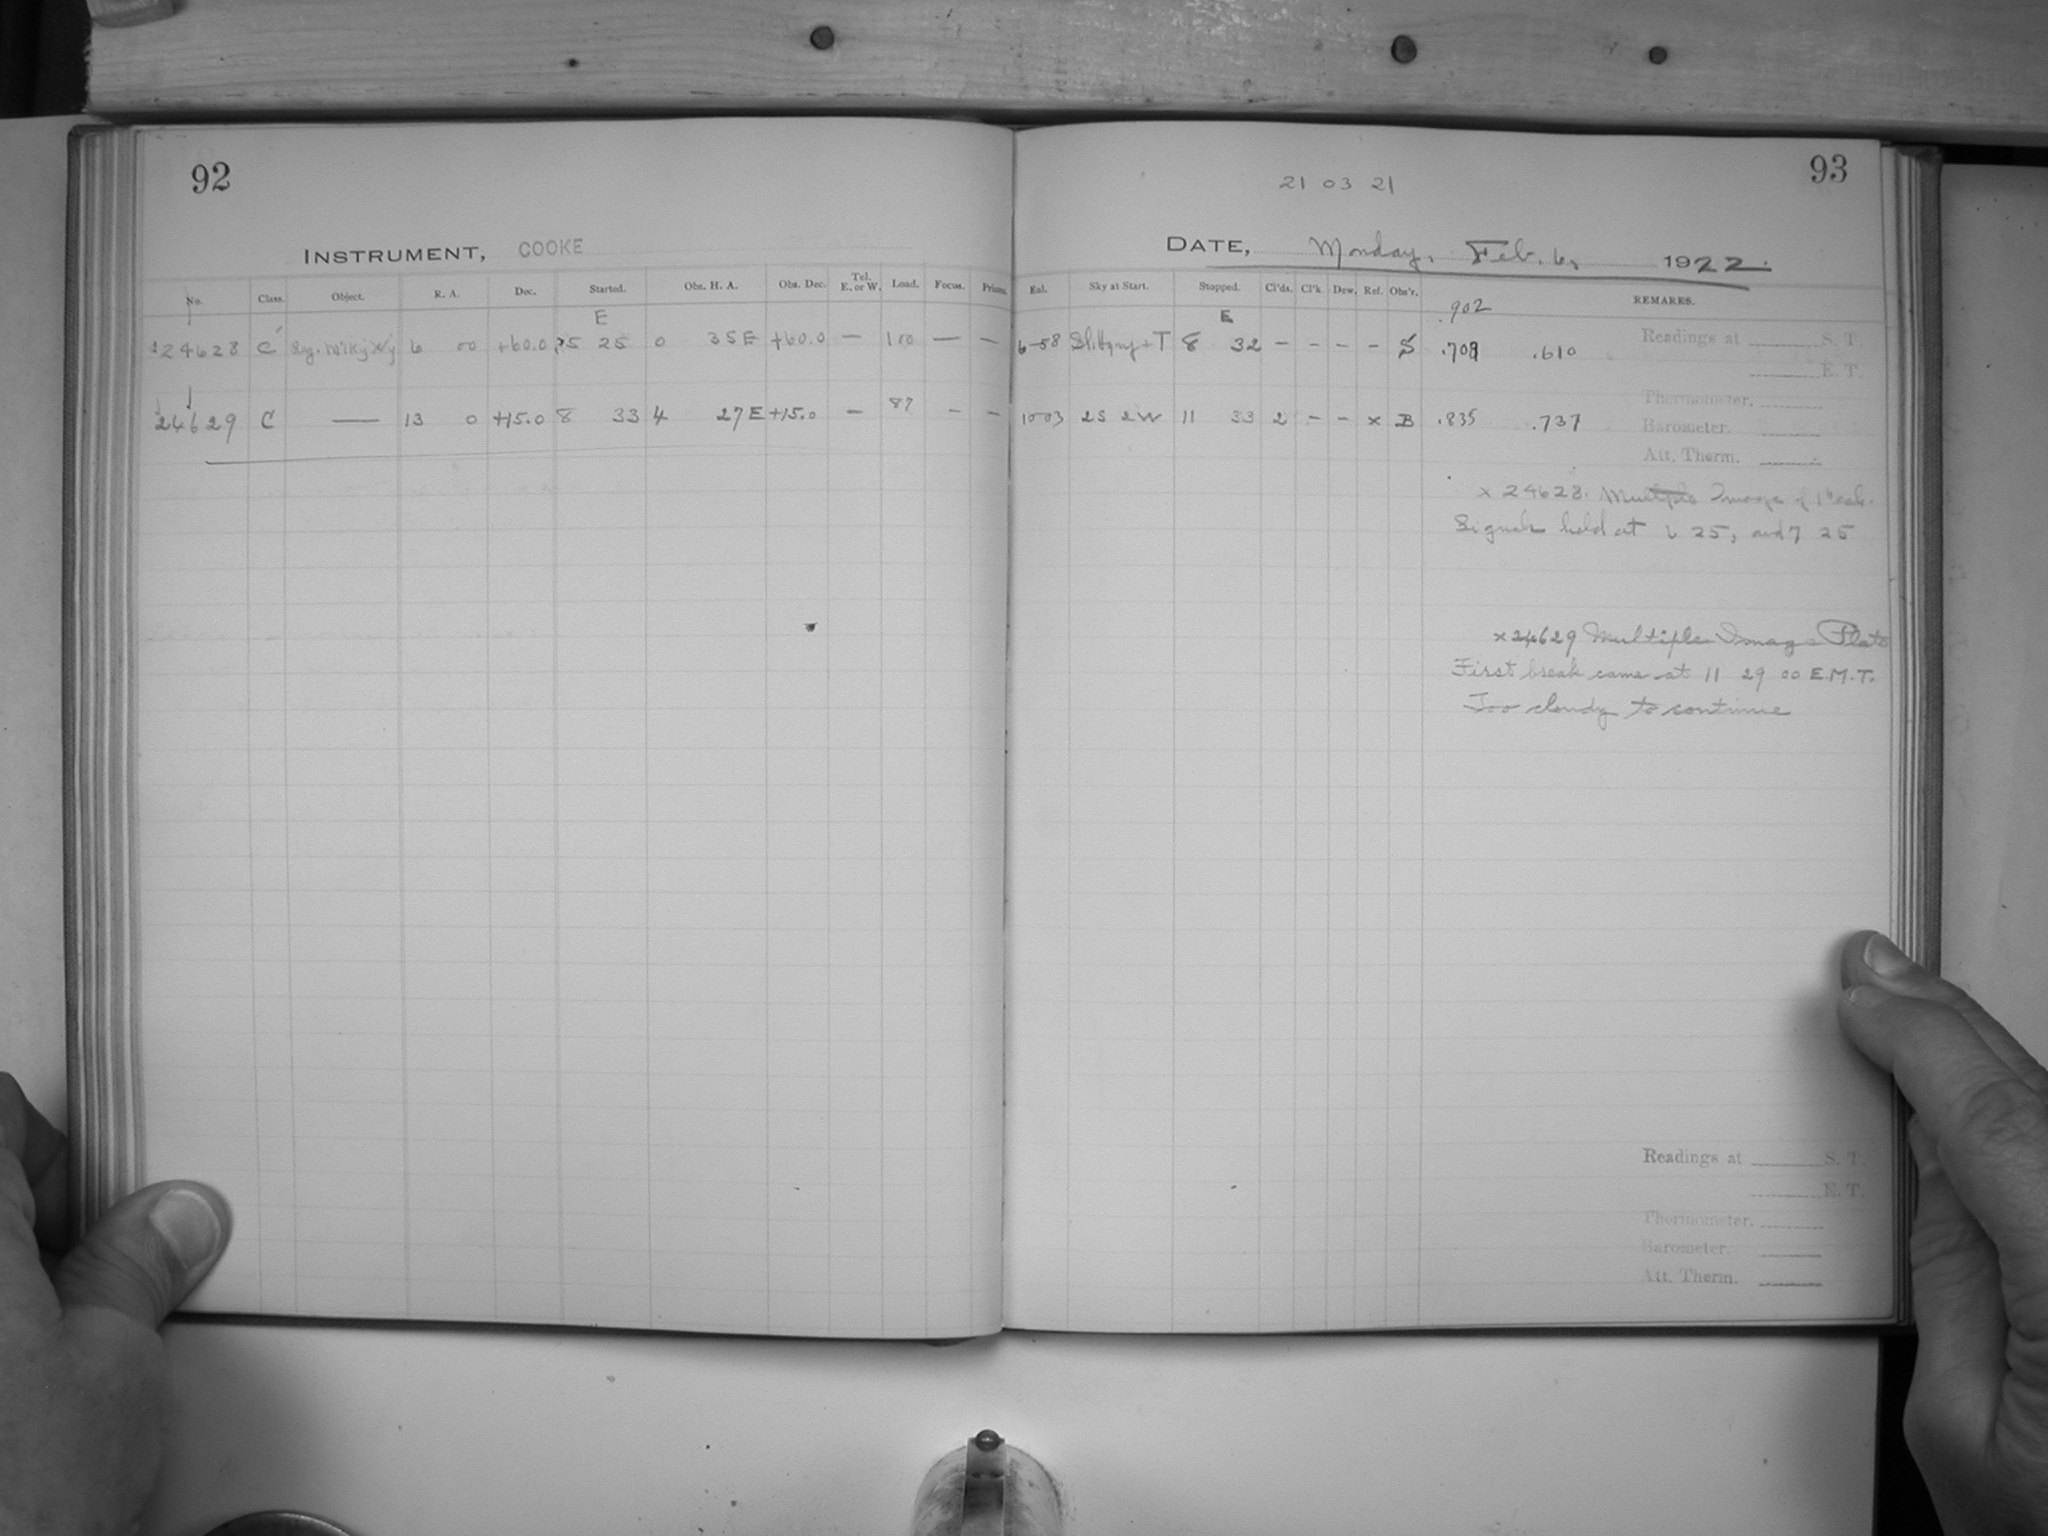 92
INSTRUMENT, COOKE
No. Class. Object. R. A. Dec. Started. Obs. H. A. Obs. Dec. Tel. E. or W. Load. Focus. Prisms.
E
24628 C Reg. Milky Wy 6 00 +60.0 5 25 0 35 E +60.0 — 100 — —
24629 C — 13 0 +15.0 8 33 4 27 E +15.0 — 87 – –
93
21 03 21
DATE, Monday, Feb. 6, 1922.
Exl. Sky at Start. Stopped. Cl'ds. Cl'k. Dew. Ref. Obs'r. REMARKS.
E .902
6-58 Sl. Hazy + T 8 32 – – – – S .709 .610
10-03 2S 2W 11 33 2 – – x B .835 .737
Readings at S. T.
E. T.
Thermometer.
Barometer.
Att. Therm.
x 24628. Multiple Image of 1 break.
Signals held at 6 25, and 7 25
x 24629 Multiple Image Plate
First break came at 11 29 00 E.M.T.
Too cloudy to continue
Readings at S. T.
E. T.
Thermometer.
Barometer.
Att. Therm.